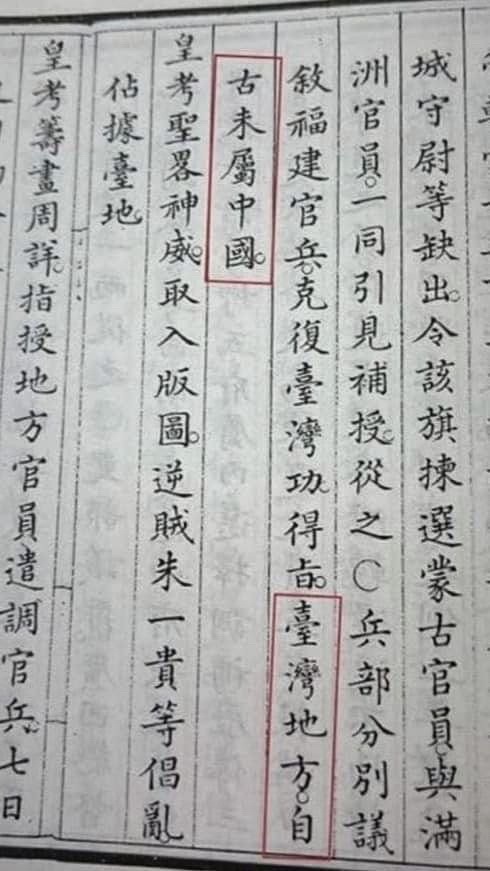 城守尉等缺出。令該旗揀選蒙古官員。與滿
洲官員。一同引見補授。從之○兵部分別議
敘福建官兵。克復臺灣功。得㫖。臺灣地方。自
古未屬中國。
皇考聖畧神威。取入版圖。逆賊朱一貴等倡亂。
佔據臺地。
皇考籌畫周詳。指授地方官員。遣調官兵。七日